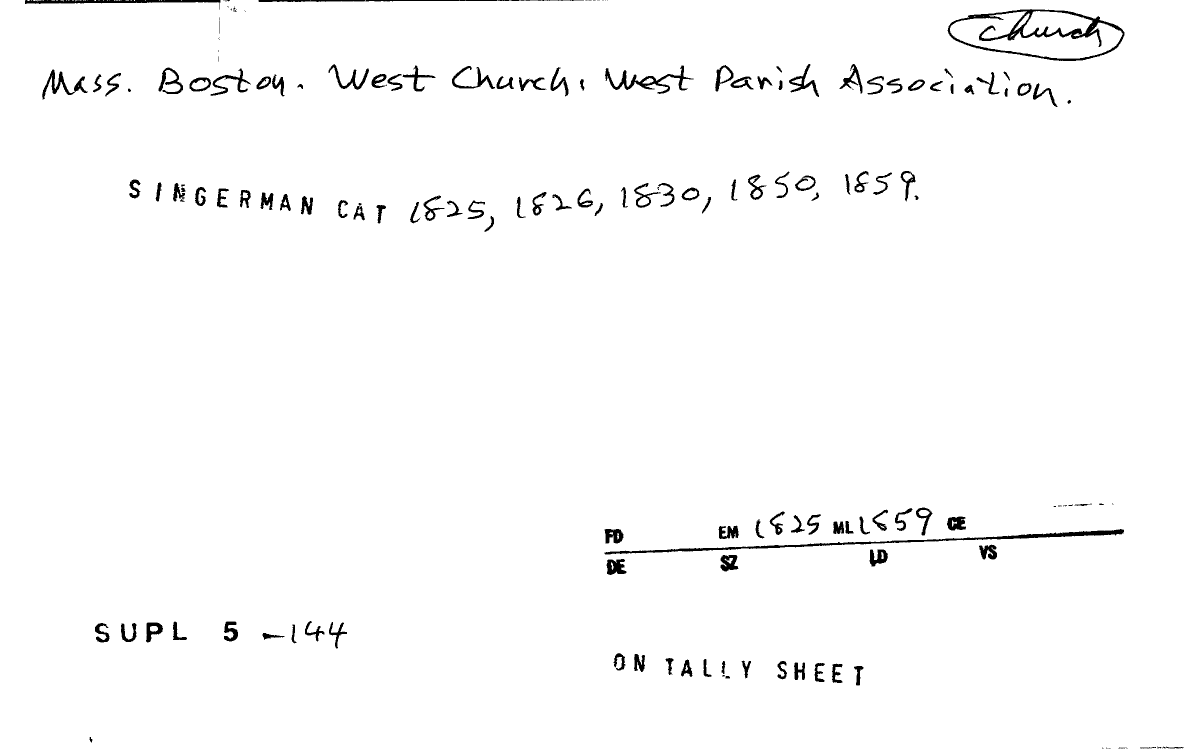 church
Mass. Boston. West Church. West Parish Association.
SINGERMAN CAT 1825, 1826, 1830, 1850, 1859.
FD EM 1825 ML 1859 CE
DE SZ LD VS
SUPL 5 -144
ON TALLY SHEET